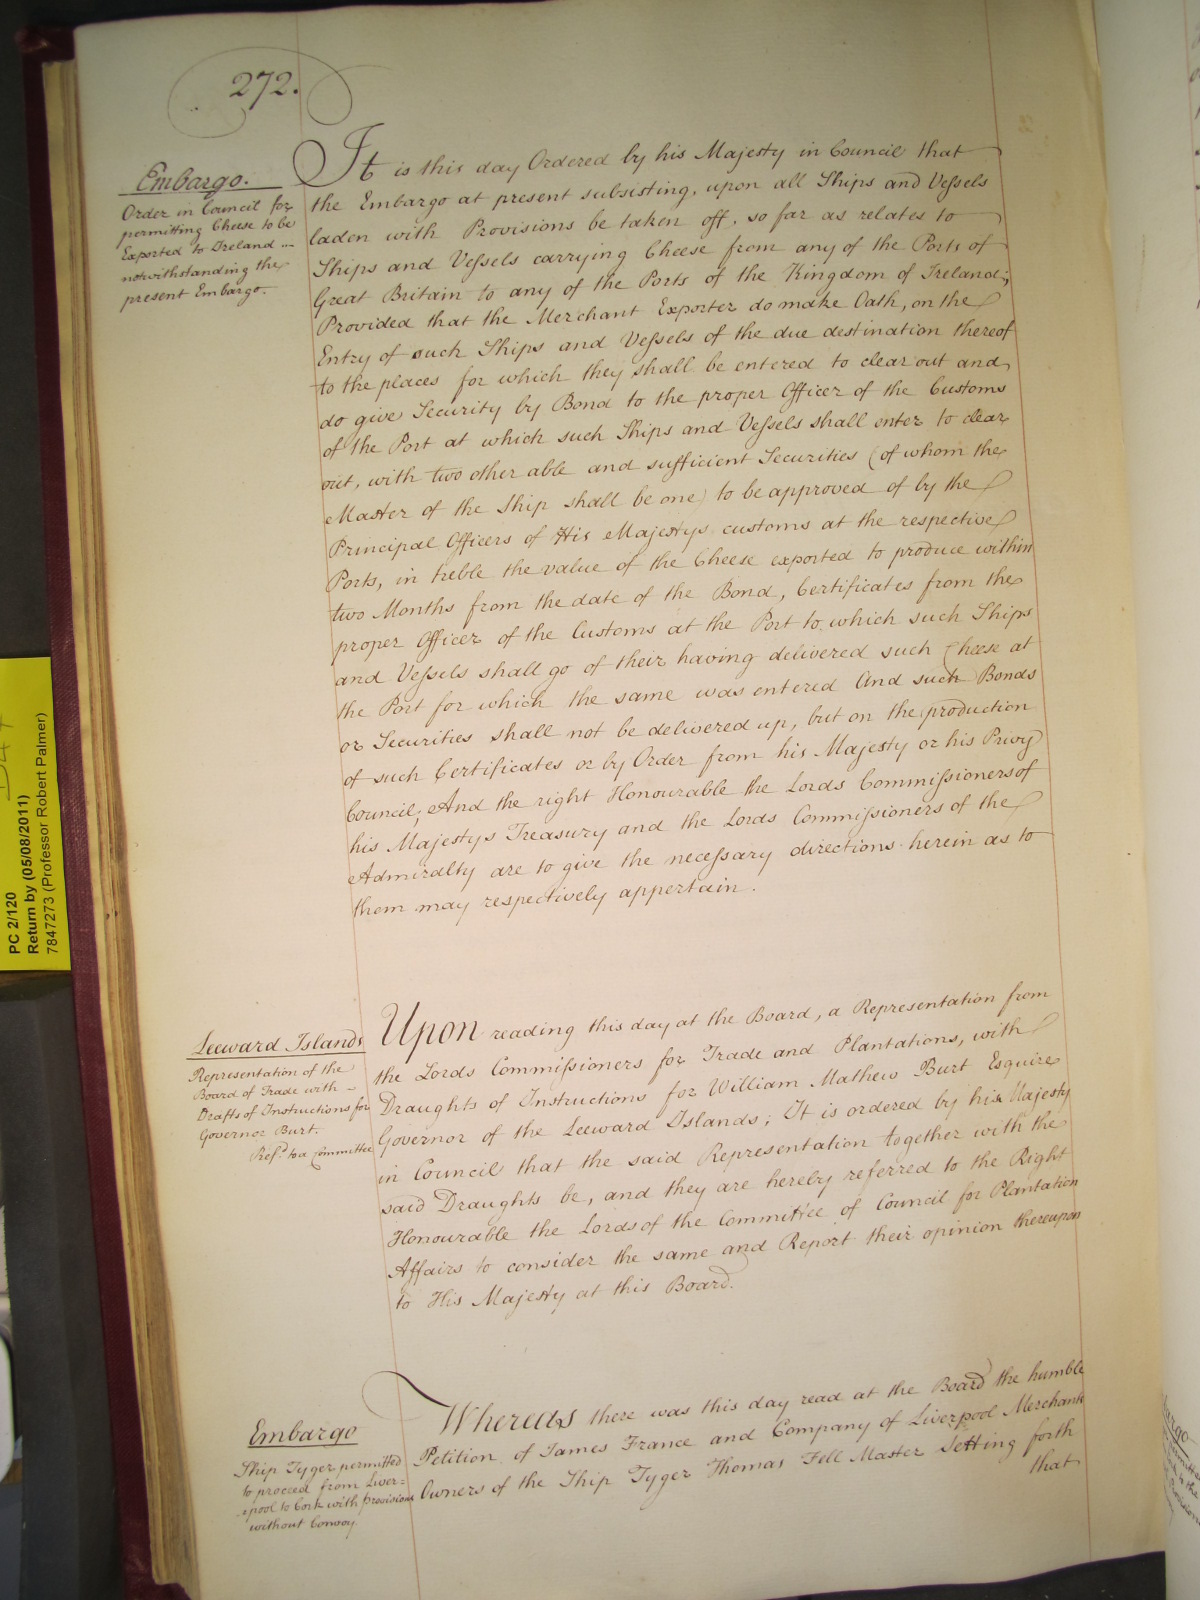 272.
Embargo.
Order in Council for
permitting Cheese to be
Exported to Ireland ...
notwithstanding the
present Embargo.
It is this day Ordered by his Majesty in Council that
the Embargo at present subsisting, upon all Ships and Vessels
laden with Provisions be taken off, so far as relates to
Ships and Vessels carrying Cheese from any of the Ports of
Great Britain to any of the Ports of the Kingdom of Ireland;
Provided that the Merchant Exporter do make Oath, on the
Entry of such Ships and Vessels of the due destination thereof
to the places for which they shall be entered to clear out and
do give Security by Bond to the proper Officer of the Customs
of the Port at which such Ships and Vessels shall enter to clear
out, with two other able and sufficient Securities (of whom the
Master of the Ship shall be one) to be approved of by the
Principal Officers of His Majestys customs at the respective
Ports, in treble the value of the Cheese exported to produce within
two Months from the date of the Bond, Certificates from the
proper Officer of the Customs at the Port to which such Ships
and Vessels shall go of their having delivered such Cheese at
the Port for which the same was entered And such Bonds
or Securities shall not be delivered up, but on the production
of such Certificates or by Order from his Majesty or his Privy
Council; And the right Honourable the Lords Commissioners of
his Majestys Treasury and the Lords Commissioners of the
Admiralty are to give the necessary directions herein as to
them may respectively appertain.
Leeward Islands
Representation of the
Board of Trade with -
Drafts of Instructions for
Governor Burt.
Ref.d to a Committee
Upon reading this day at the Board, a Representation from
the Lords Commissioners for Trade and Plantations, with
Draughts of Instructions for William Mathew Burt Esquire
Governor of the Leeward Islands; It is ordered by his Majesty
in Council that the said Representation together with the
said Draughts be, and they are hereby referred to the Right
Honourable the Lords of the Committee of Council for Plantation
Affairs to consider the same and Report their opinion thereupon
to His Majesty at this Board.
Embargo
Ship Tyger permitted
to proceed from Liver=
=pool to Cork with provisions
without Convoy
Whereas there was this day read at the Board the humble
Petition of James France and Company of Liverpool Merchants
Owners of the Ship Tyger Thomas Fell Master Setting forth
that
PC 2/120
Return by (05/08/2011)
7847273 (Professor Robert Palmer)